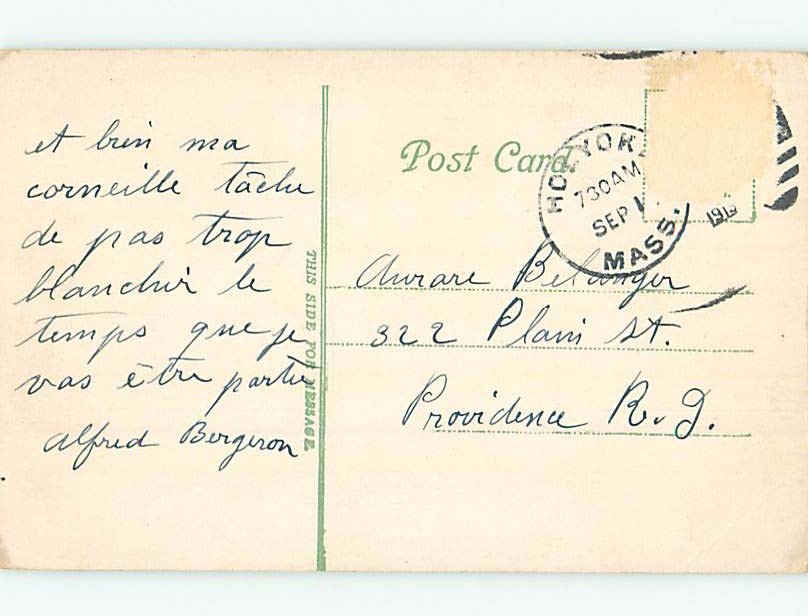 et bien ma
corneille tâche
de pas trop
blanchir le
temps que je
vas être partie
Alfred Bergeron
THIS SIDE FOR MESSAGE.
Post Card
HOLYOKE
730AM
SEP 1
MASS.
Aurore Belanger
322 Plain St.
Providence R. I.